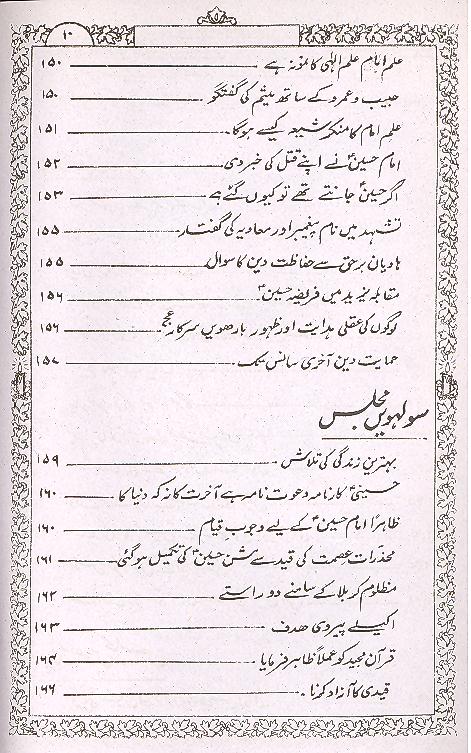 ۱۰
علم امام علم الٰہی کا نمونہ ہے ۱۵۰
حبیب و عمرو کے ساتھ میثم کی گفتگو ۱۵۰
علم امام کا منکر شیعہ کیسے ہوگا۔ ۱۵۱
امام حسینؑ نے اپنے قتل کی خبر دی۔ ۱۵۲
اگر حسینؑ جانتے تھے تو کیوں گئے ہے ۱۵۳
تشہد میں نام پیغمبر اور معاویہ کی گفتار۔ ۱۵۵
ہادیان برحق سے حفاظت دین کا سوال ۱۵۵
مقابلہ یزید میں فریضہ حسینؑ۔ ۱۵۶
لوگوں کی عقلی ہدایت اور ظہور بارھویں سرکار عج ۱۵۶
حمایت دین آخری سانس تک۔ ۱۵۷
سولہویں مجلس
بہترین زندگی کی تلاش ۱۵۹
حسینیؑ کارنامہ دعوت نامہ ہے آخرت کا نہ کہ دنیا کا ۱۶۰
ظاہراً امام حسینؑ کے لیے وجوب قیام ۱۶۰
مخدرات عصمت کی قید سے مشن حسینؑ کی تکمیل ہوگئی ۱۶۱
مظلوم کربلا کے سامنے دو راستے ۱۶۲
اکیلے پیروی ھدف ۱۶۳
قرآن مجید کو عملاً ظاہر فرمایا۔ ۱۶۴
قیدی کا آزاد کرنا۔ ۱۶۶